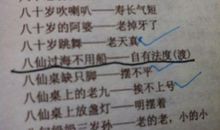 八十岁吹喇叭——寿长气短
八十岁的阿婆——老掉牙了
八十岁跳舞——老天真
八仙过海不用船——自有法度(渡)
八仙桌缺只脚——摆不平
八仙桌上的老九——挨不上号
八仙桌上放盏灯——明摆着
岁孙——老的老,小的小